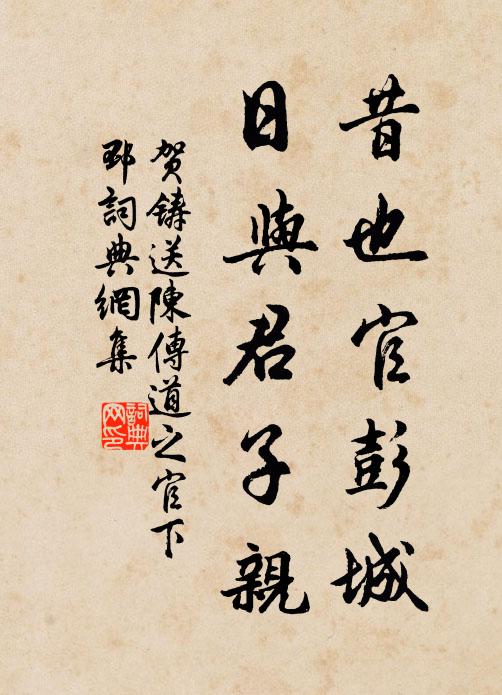 昔也官彭城
日與君子親
賀鑄送陳傳道之官下
邳詞典網集
詞典
网印